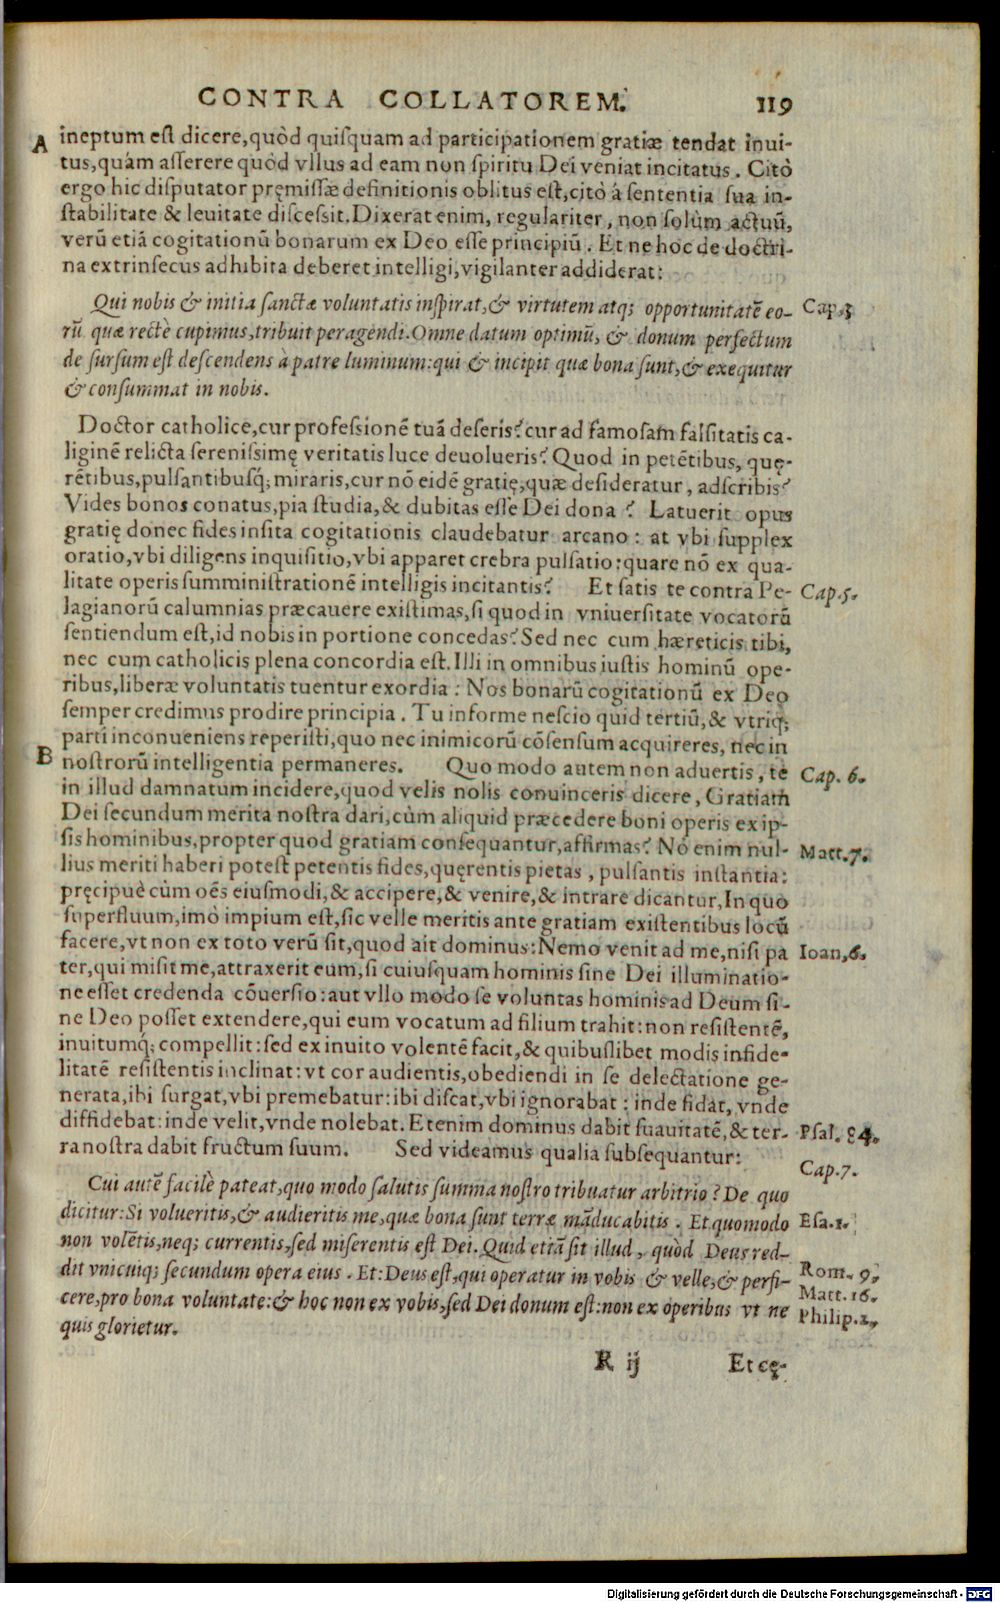 CONTRA COLLATOREM. 119
A ineptum est dicere, quòd quisquam ad participationem gratiæ tendat inui-
tus, quàm asserere quòd vllus ad eam non spiritu Dei veniat incitatus. Citò
ergo hic disputator pręmissæ definitionis oblitus est, citò á sententia sua in-
stabilitate & leuitate discessit. Dixerat enim, regulariter, non solùm actuũ,
verũ etiã cogitationũ bonarum ex Deo esse principiũ. Et ne hoc de doctri-
na extrinsecus adhibita deberet intelligi, vigilanter addiderat:
Qui nobis & initia sanctæ voluntatis inspirat, & virtutem atq; opportunitatẽ eo- Cap.3
rũ quæ rectè cupimus, tribuit peragendi. Omne datum optimũ, & donum perfectum
de sursum est descendens à patre luminum: qui & incipit quæ bona sunt, & exequitur
& consummat in nobis.
Doctor catholice, cur professionẽ tuã deseris? cur ad famosam falsitatis ca-
liginẽ relicta serenissimę veritatis luce deuolueris? Quod in petẽtibus, quę-
rẽtibus, pulsantibusq́; miraris, cur nõ eidẽ gratię, quæ desideratur, adscribis?
Vides bonos conatus, pia studia, & dubitas esse Dei dona? Latuerit opus
gratię donec fides insita cogitationis claudebatur arcano: at vbi supplex
oratio, vbi diligens inquisitio, vbi apparet crebra pulsatio: quare nõ ex qua-
litate operis sumministrationẽ intelligis incitantis? Et satis te contra Pe- Cap.5.
lagianorũ calumnias præcauere existimas, si quod in vniuersitate vocatorũ
sentiendum est, id nobis in portione concedas? Sed nec cum hæreticis tibi,
nec cum catholicis plena concordia est. Illi in omnibus iustis hominũ ope-
ribus, liberæ voluntatis tuentur exordia: Nos bonarũ cogitationũ ex Deo
semper credimus prodire principia. Tu informe nescio quid tertiũ, & vtriq;
parti inconueniens reperisti, quo nec inimicorũ cõsensum acquireres, nec in
B nostrorũ intelligentia permaneres. Quo modo autem non aduertis, te Cap. 6.
in illud damnatum incidere, quod velis nolis conuinceris dicere, Gratiam
Dei secundum merita nostra dari, cùm aliquid præcedere boni operis ex ip-
sis hominibus, propter quod gratiam consequantur, affirmas? Nõ enim nul- Matt.7.
lius meriti haberi potest petentis fides, quęrentis pietas, pulsantis instantia:
pręcipuè cùm oẽs eiusmodi, & accipere, & venire, & intrare dicantur, In quo
superfluum, imò impium est, sic velle meritis ante gratiam existentibus locũ
facere, vt non ex toto verũ sit, quod ait dominus: Nemo venit ad me, nisi pa Ioan,6.
ter, qui misit me, attraxerit eum, si cuiusquam hominis sine Dei illuminatio-
ne esset credenda cõuersio: aut vllo modo se voluntas hominis ad Deum si-
ne Deo posset extendere, qui eum vocatum ad filium trahit: non resistentẽ,
inuitumq́; compellit: sed ex inuito volentẽ facit, & quibuslibet modis infide-
litatẽ resistentis inclinat: vt cor audientis, obediendi in se delectatione ge-
nerata, ibi surgat, vbi premebatur: ibi discat, vbi ignorabat: inde fidat, vnde
diffidebat: inde velit, vnde nolebat. Etenim dominus dabit suauitatẽ, & ter- Psal. 84.
ra nostra dabit fructum suum. Sed videamus qualia subsequantur:
Cap.7.
Cui autẽ facilè pateat, quo modo salutis summa nostro tribuatur arbitrio? De quo
dicitur: Si volueritis, & audieritis me, quæ bona sunt terræ mãducabitis. Et quomodo Esa.1.
non volẽtis, neq; currentis, sed miserentis est Dei. Quid etiã sit illud, quòd Deus red-
dit vnicuiq; secundum opera eius. Et: Deus est, qui operatur in vobis & velle, & perfi- Rom. 9.
Matt. 16.
cere, pro bona voluntate: & hoc non ex vobis, sed Dei donum est: non ex operibus vt ne Philip.2,
quis glorietur.
R ij Et cę-
Digitalisierung gefördert durch die Deutsche Forschungsgemeinschaft - DFG